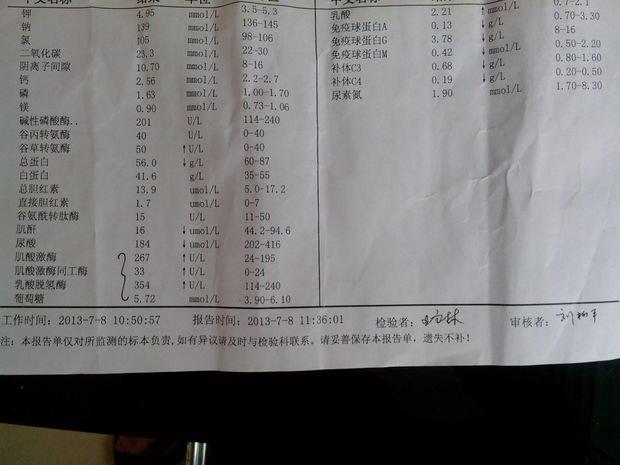 钾 4.95 mmol/L 3.5-5.3
钠 139 mmol/L 136-145
氯 105 mmol/L 98-106
二氧化碳 23.3 mmol/L 22-30
阴离子间隙 10.70 mmol/L 8-16
钙 2.56 mmol/L 2.2-2.7
磷 1.63 mmol/L 1.00-1.70
镁 0.90 mmol/L 0.73-1.06
碱性磷酸酶.. 201 U/L 114-240
谷丙转氨酶 40 U/L 0-40
谷草转氨酶 50 ↑U/L 0-40
总蛋白 56.0 ↓g/L 60-87
白蛋白 41.6 g/L 35-55
总胆红素 13.9 umol/L 5.0-17.2
直接胆红素 1.7 umol/L 0-7
谷氨酰转肽酶 15 U/L 11-50
肌酐 16 ↓umol/L 44.2-94.6
尿酸 184 ↓umol/L 202-416
肌酸激酶 267 ↑U/L 24-195
肌酸激酶同工酶 33 ↑U/L 0-24
乳酸脱氢酶 354 ↑U/L 114-240
葡萄糖 5.72 mmol/L 3.90-6.10
乳酸 2.21 ↑mmol/L 0.7-2.1
免疫球蛋白A 0.13 ↓g/L 0.70-3.30
免疫球蛋白G 3.78 ↓g/L 8-16
免疫球蛋白M 0.42 ↓g/L 0.50-2.20
补体C3 0.68 ↓g/L 0.80-1.60
补体C4 0.19 ↓g/L 0.20-0.50
尿素氮 1.90 mmol/L 1.70-8.30
工作时间：2013-7-8 10:50:57 报告时间：2013-7-8 11:36:01 检验者： 审核者：
注：本报告单仅对所监测的标本负责,如有异议请及时与检验科联系。请妥善保存本报告单，遗失不补！